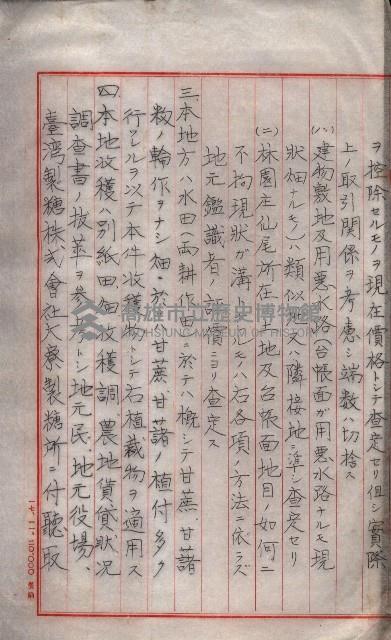 ヲ控除セルモノヲ現在價格トシテ査定セリ但シ實際
上ノ取引関係ヲ考慮シ端数ハ切捨ス
(ハ)建物敷地及用悪水路(台帳面ガ用悪水路ナルモ現
狀畑ナルモノ)ハ類似地又ハ隣接地ニ準シ査定セリ
(ニ)林園庄仙尾所在ノ土地及台帳面地目ノ如何ニ
不拘現狀ガ溝トナルモノハ右各項ノ方法ニ依ラズ
地元鑑識者ノ評價ニヨリ査定ス
三、本地方ハ水田(両耕作田)ニ於テハ概シテ甘蔗、甘藷
数ノ輪作ヲナシ畑ニ於テハ甘蔗、甘藷ノ植付多ク
行ヒヲルヲ以テ本件收穫物トシテ右植裁物ヲ適用ス
四、本地收穫ハ別紙田畑收穫調、農地賃貸狀況
調査書ノ抜萃ヲ参考トシ地元民、地元役場、
臺湾製糖株式會社大寮製糖所ニ付聽取
高雄市立歷史博物館
KAOHSIUNG MUSEUM OF HISTORY